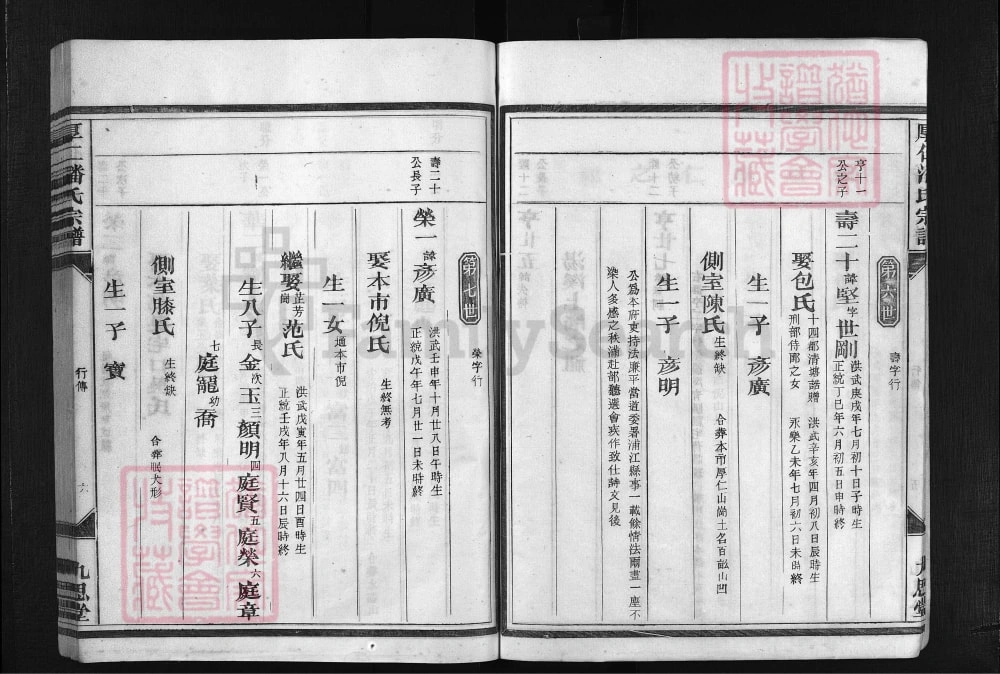 第六世
壽字行
亨十一
公之子
壽二十諱堅字世剛
洪武庚戌年七月初十日子時生
正統丁巳年六月初五日申時終
娶包氏
十四都清塘諮贈
刑部侍郎之女
洪武辛亥年四月初八日辰時生
永樂乙未年七月初六日未時終
生一子彥廣
側室陳氏
生終缺
合葬本市厚仁山崗土名百畝山凹
生一子彥明
公爲本府吏持法廉平當道委署浦江縣事一載餘情法兩盡一塵不
染人多感之秩滿赴部聽選會疾作致仕詩文見後
厚仁潘氏宗譜
九思堂
第七世
榮字行
壽二十
公長子
榮一諱彥廣
洪武壬申年十月廿八日午時生
正統戊午年七月廿一日未時終
娶本市倪氏
生終無考
生一女
適本市倪
繼娶芷芳崗范氏
洪武戊寅年五月廿四日酉時生
正統壬戌年八月十六日辰時終
生八子長金次玉三顏明四庭賢五庭榮六庭章
七庭寵幼喬
側室滕氏
生終缺
合葬眠犬形
生一子寶
厚仁潘氏宗譜
行傳
六
九思堂
譜學會
特藏
FamilySearch